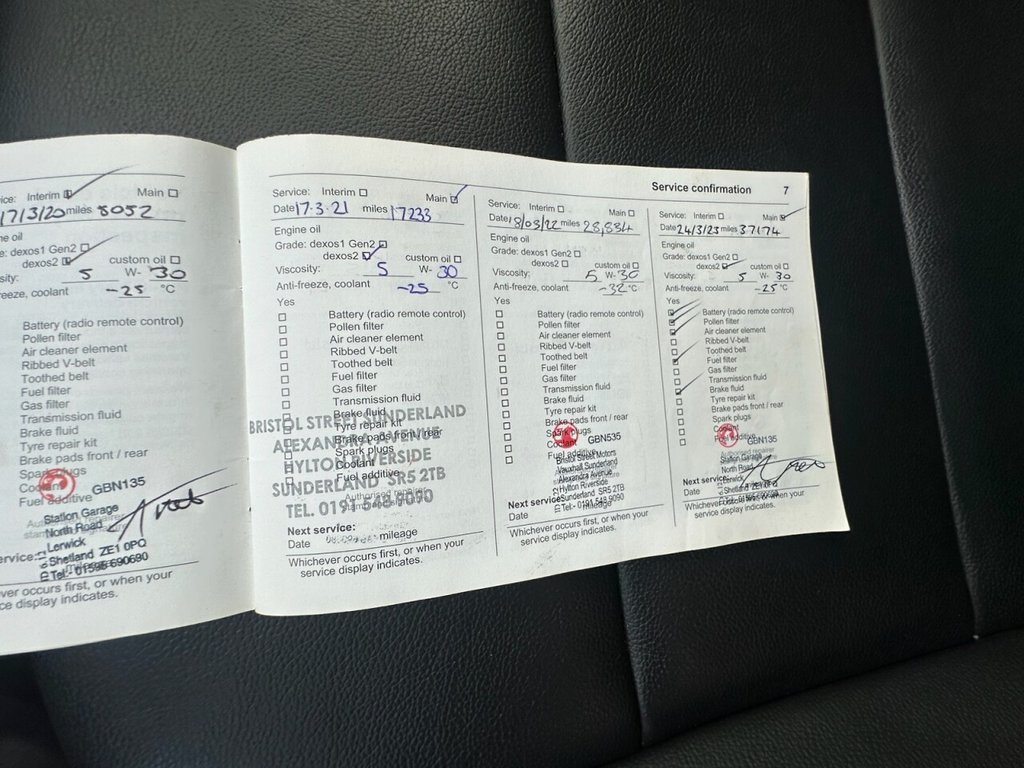 Interim Main
17/3/20 miles 8052
dexos1 Gen2
dexos2 custom oil
5 W- 30
coolant -25 °C
Battery (radio remote control)
Pollen filter
Air cleaner element
Ribbed V-belt
Toothed belt
Fuel filter
Gas filter
Transmission fluid
Brake fluid
Tyre repair kit
Brake pads front / rear
Spark plugs
Coolant
Fuel additive
GBN135
Station Garage
North Road
Lerwick
Shetland ZE1 0PQ
Tel:- 01595 690690
occurs first, or when your
display indicates.
Service: Interim Main
Date 17.3.21 miles 17233
Engine oil
Grade: dexos1 Gen2
dexos2 custom oil
Viscosity: 5 W- 30
Anti-freeze, coolant -25 °C
Yes
Battery (radio remote control)
Pollen filter
Air cleaner element
Ribbed V-belt
Toothed belt
Fuel filter
Gas filter
Transmission fluid
Brake fluid
Tyre repair kit
Brake pads front / rear
Spark plugs
Coolant
Fuel additive
BRISTOL STREET SUNDERLAND
ALEXANDRA AVENUE
HYLTON RIVERSIDE
SUNDERLAND SR5 2TB
TEL. 0191 548 9090
Next service:
Date mileage
Whichever occurs first, or when your
service display indicates.
Service confirmation 7
Service: Interim Main
Date 18/03/22 miles 28,834
Engine oil
Grade: dexos1 Gen2
dexos2 custom oil
Viscosity: 5 W- 30
Anti-freeze, coolant -32 °C
Yes
Battery (radio remote control)
Pollen filter
Air cleaner element
Ribbed V-belt
Toothed belt
Fuel filter
Gas filter
Transmission fluid
Brake fluid
Tyre repair kit
Brake pads front / rear
Spark plugs
Coolant
Fuel additive
GBN535
Bristol Street Motors
Vauxhall Sunderland
Alexandra Avenue
Hylton Riverside
Sunderland SR5 2TB
Tel:- 0191 548 9090
Next service:
Date mileage
Whichever occurs first, or when your
service display indicates.
Service: Interim Main
Date 24/3/23 miles 37174
Engine oil
Grade: dexos1 Gen2
dexos2 custom oil
Viscosity: 5 W- 30
Anti-freeze, coolant -25 °C
Yes
Battery (radio remote control)
Pollen filter
Air cleaner element
Ribbed V-belt
Toothed belt
Fuel filter
Gas filter
Transmission fluid
Brake fluid
Tyre repair kit
Brake pads front / rear
Spark plugs
Coolant
Fuel additive
GBN135
Station Garage
North Road
Lerwick
Shetland
Date
Whichever occurs first, or when your
service display indicates.